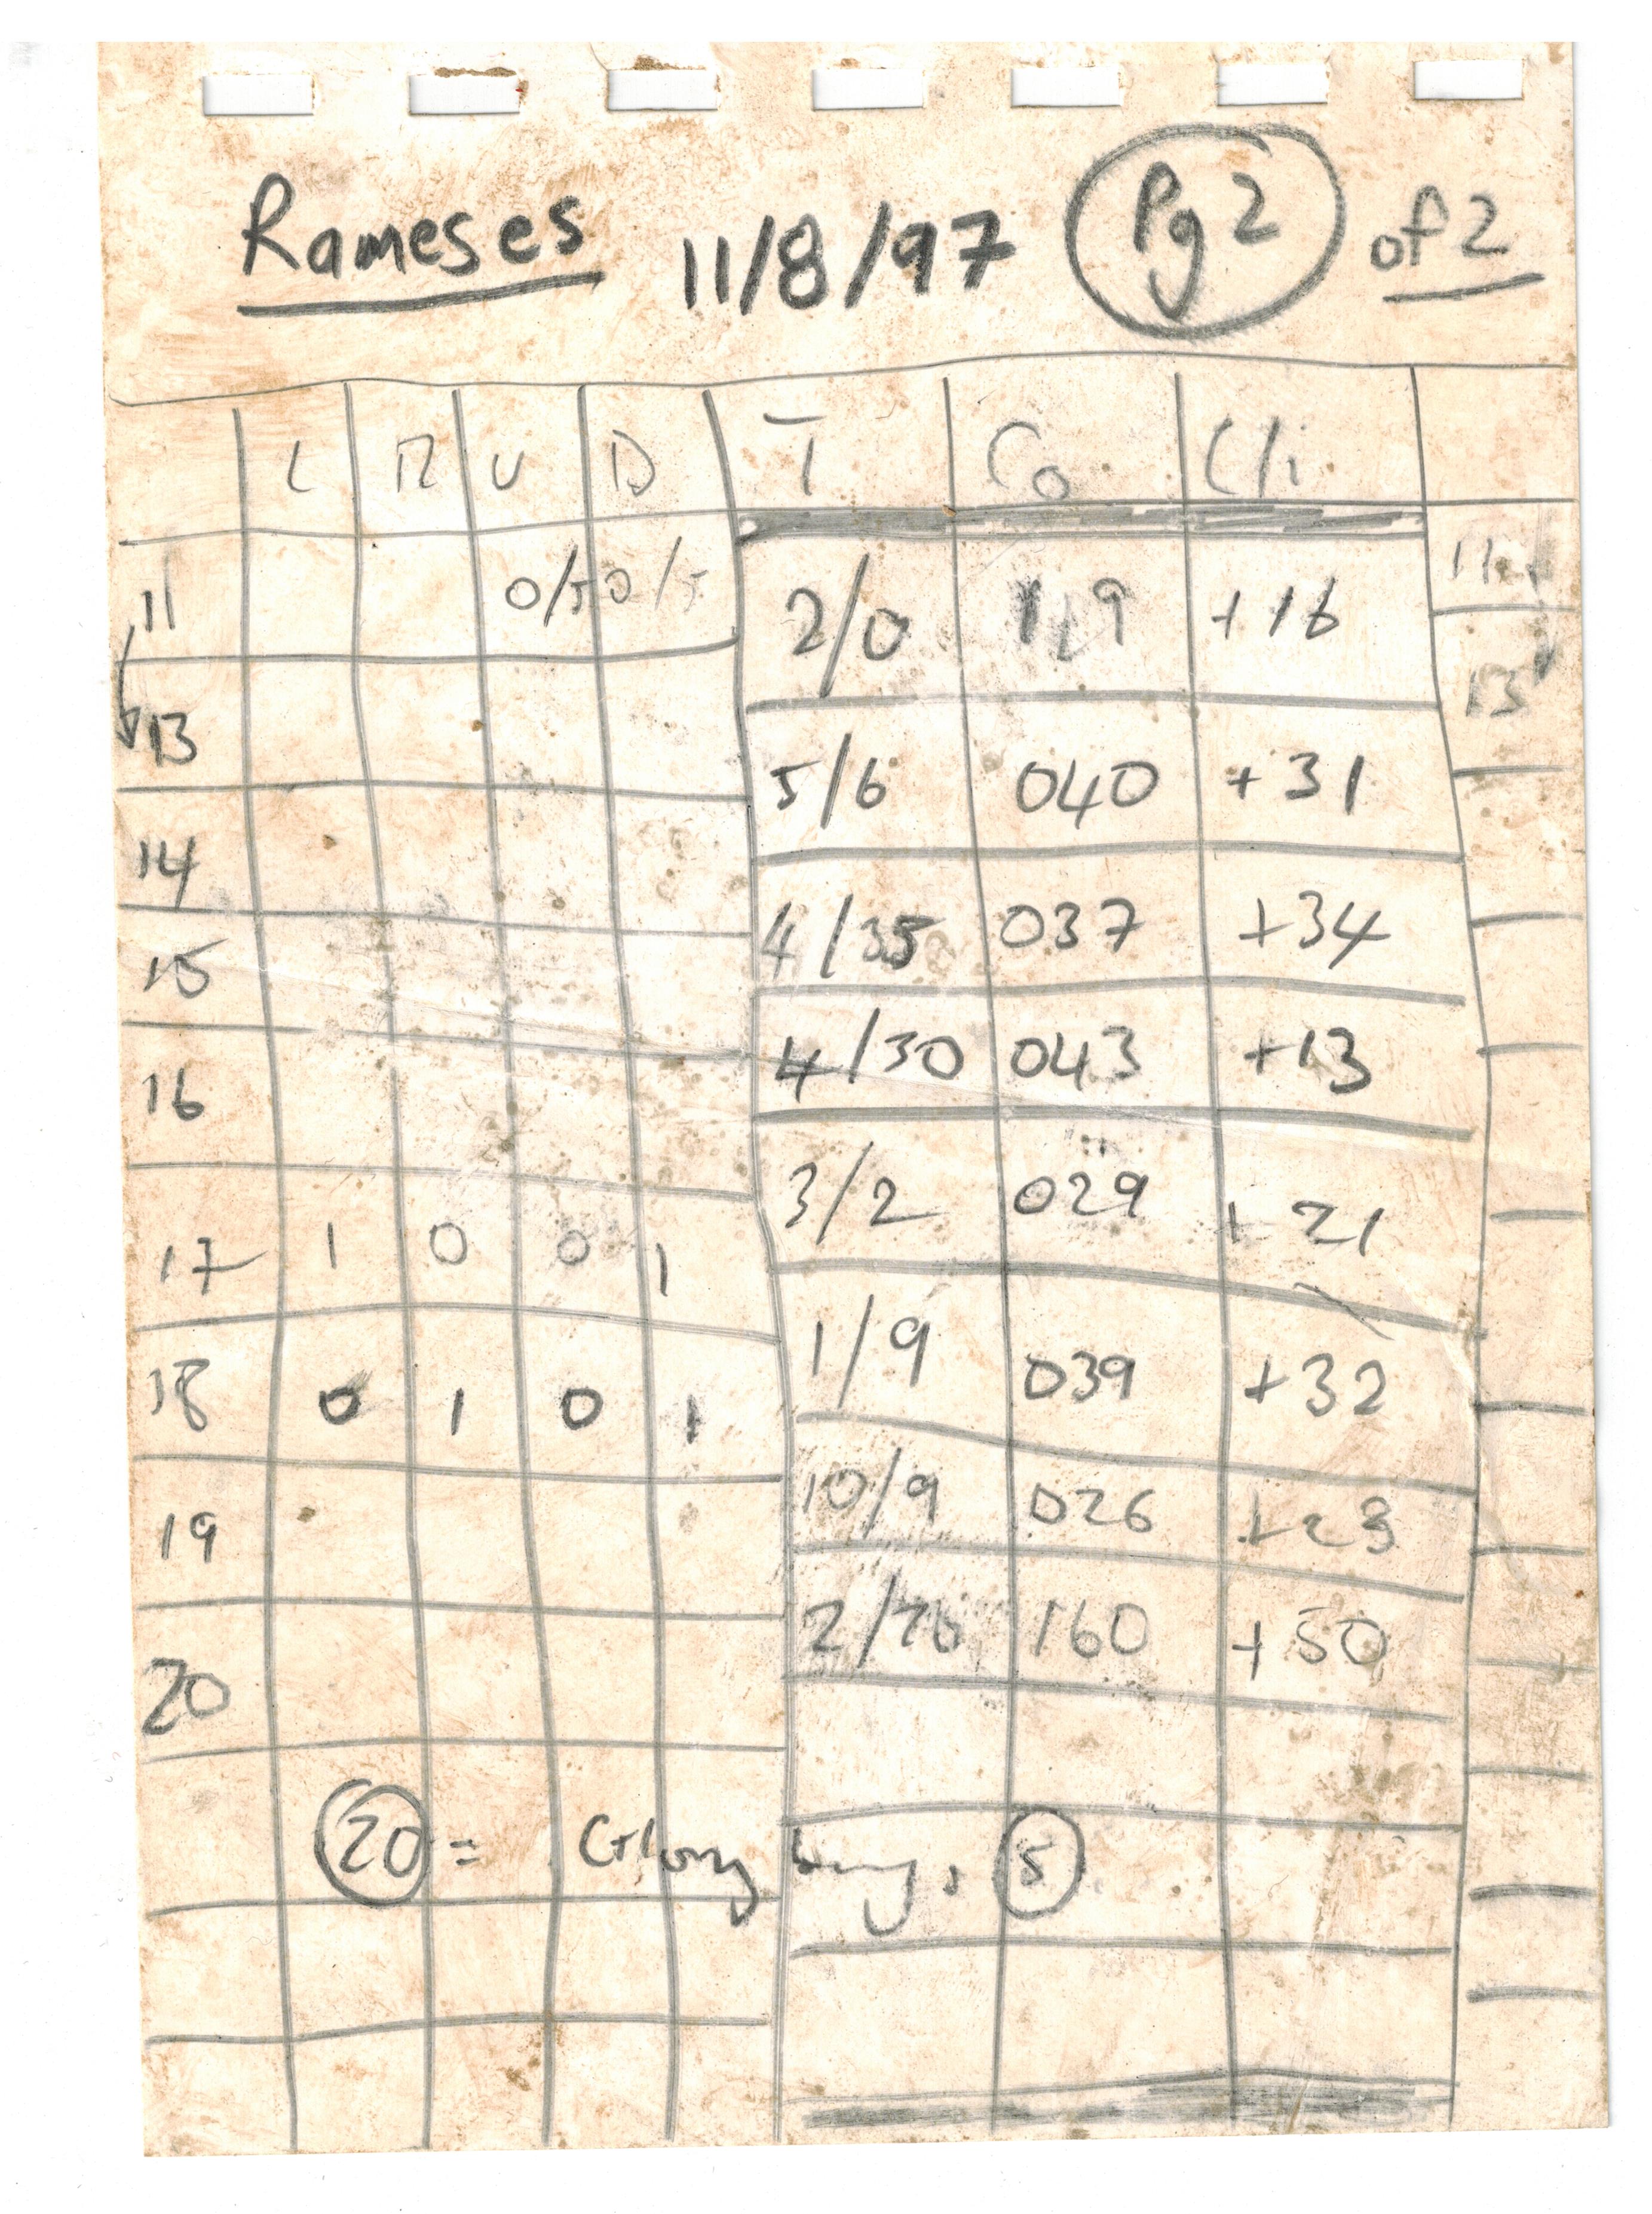 Rameses 11/8/97 Pg 2 of 2
L R U D T Co C/i
11 0/5 0/5 2/0 119 +16 11
13 5/6 040 +31 13
14 4/35 037 +34
15 4/30 043 +13
16 3/2 029 +21
17 1 0 0 1 1/9 039 +32
18 0 1 0 1 10/9 026 +23
19 160 +50
20
20 = 5